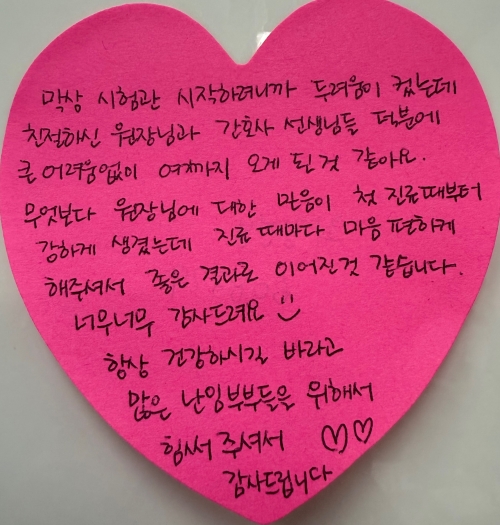 막상 시험관 시작하려니까 두려움이 컸는데
친절하신 원장님과 간호사 선생님들 덕분에
큰 어려움없이 여까지 오게 된 것 같아요.
무엇보다 원장님에 대한 믿음이 첫 진료때부터
강하게 생겼는데 진료 때마다 마음 편하게
해주셔서 좋은 결과로 이어진것 같습니다.
너무너무 감사드려요
항상 건강하시길 바라고
많은 난임부부들을 위해서
힘써 주셔서 ♡♡
감사드립니다